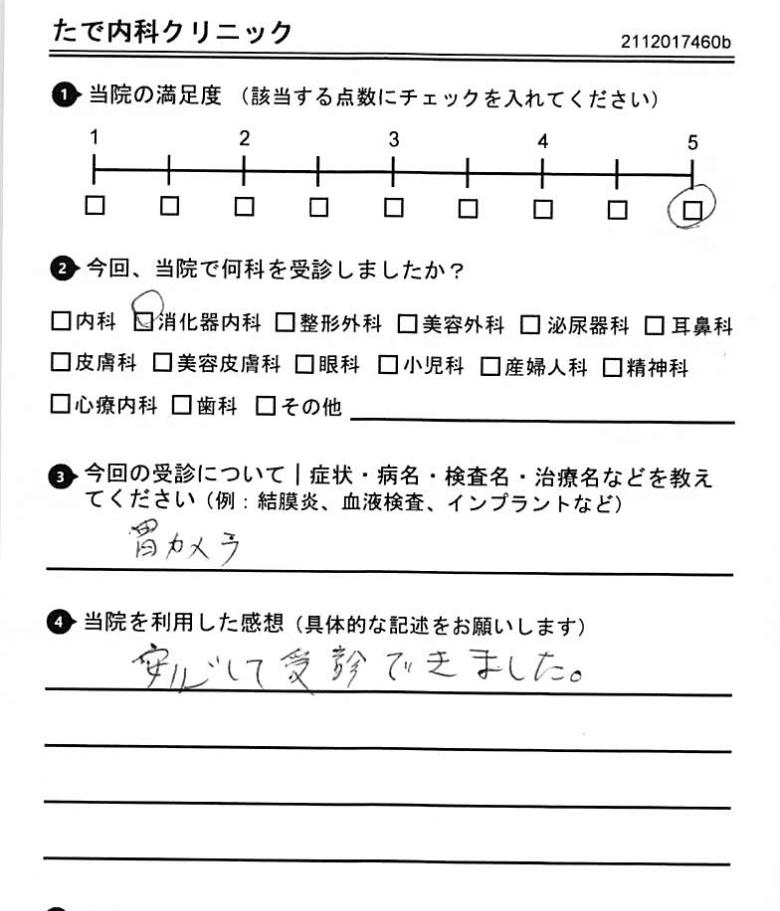 たで内科クリニック
2112017460b
1 当院の満足度 （該当する点数にチェックを入れてください）
1 2 3 4 5
2 今回、当院で何科を受診しましたか？
□内科 □消化器内科 □整形外科 □美容外科 □泌尿器科 □耳鼻科
□皮膚科 □美容皮膚科 □眼科 □小児科 □産婦人科 □精神科
□心療内科 □歯科 □その他
3 今回の受診について｜症状・病名・検査名・治療名などを教え
てください（例：結膜炎、血液検査、インプラントなど）
胃カメラ
4 当院を利用した感想（具体的な記述をお願いします）
安心して受診できました。